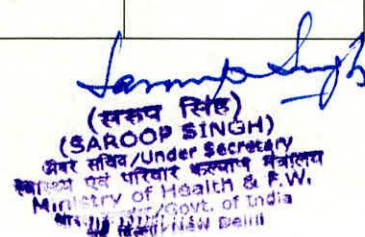 Saroop Singh
(सरूप सिंह)
(SAROOP SINGH)
अवर सचिव/Under Secretary
स्वास्थ्य एवं परिवार कल्याण मंत्रालय
Ministry of Health & F.W.
भारत सरकार/Govt. of India
नई दिल्ली/New Delhi